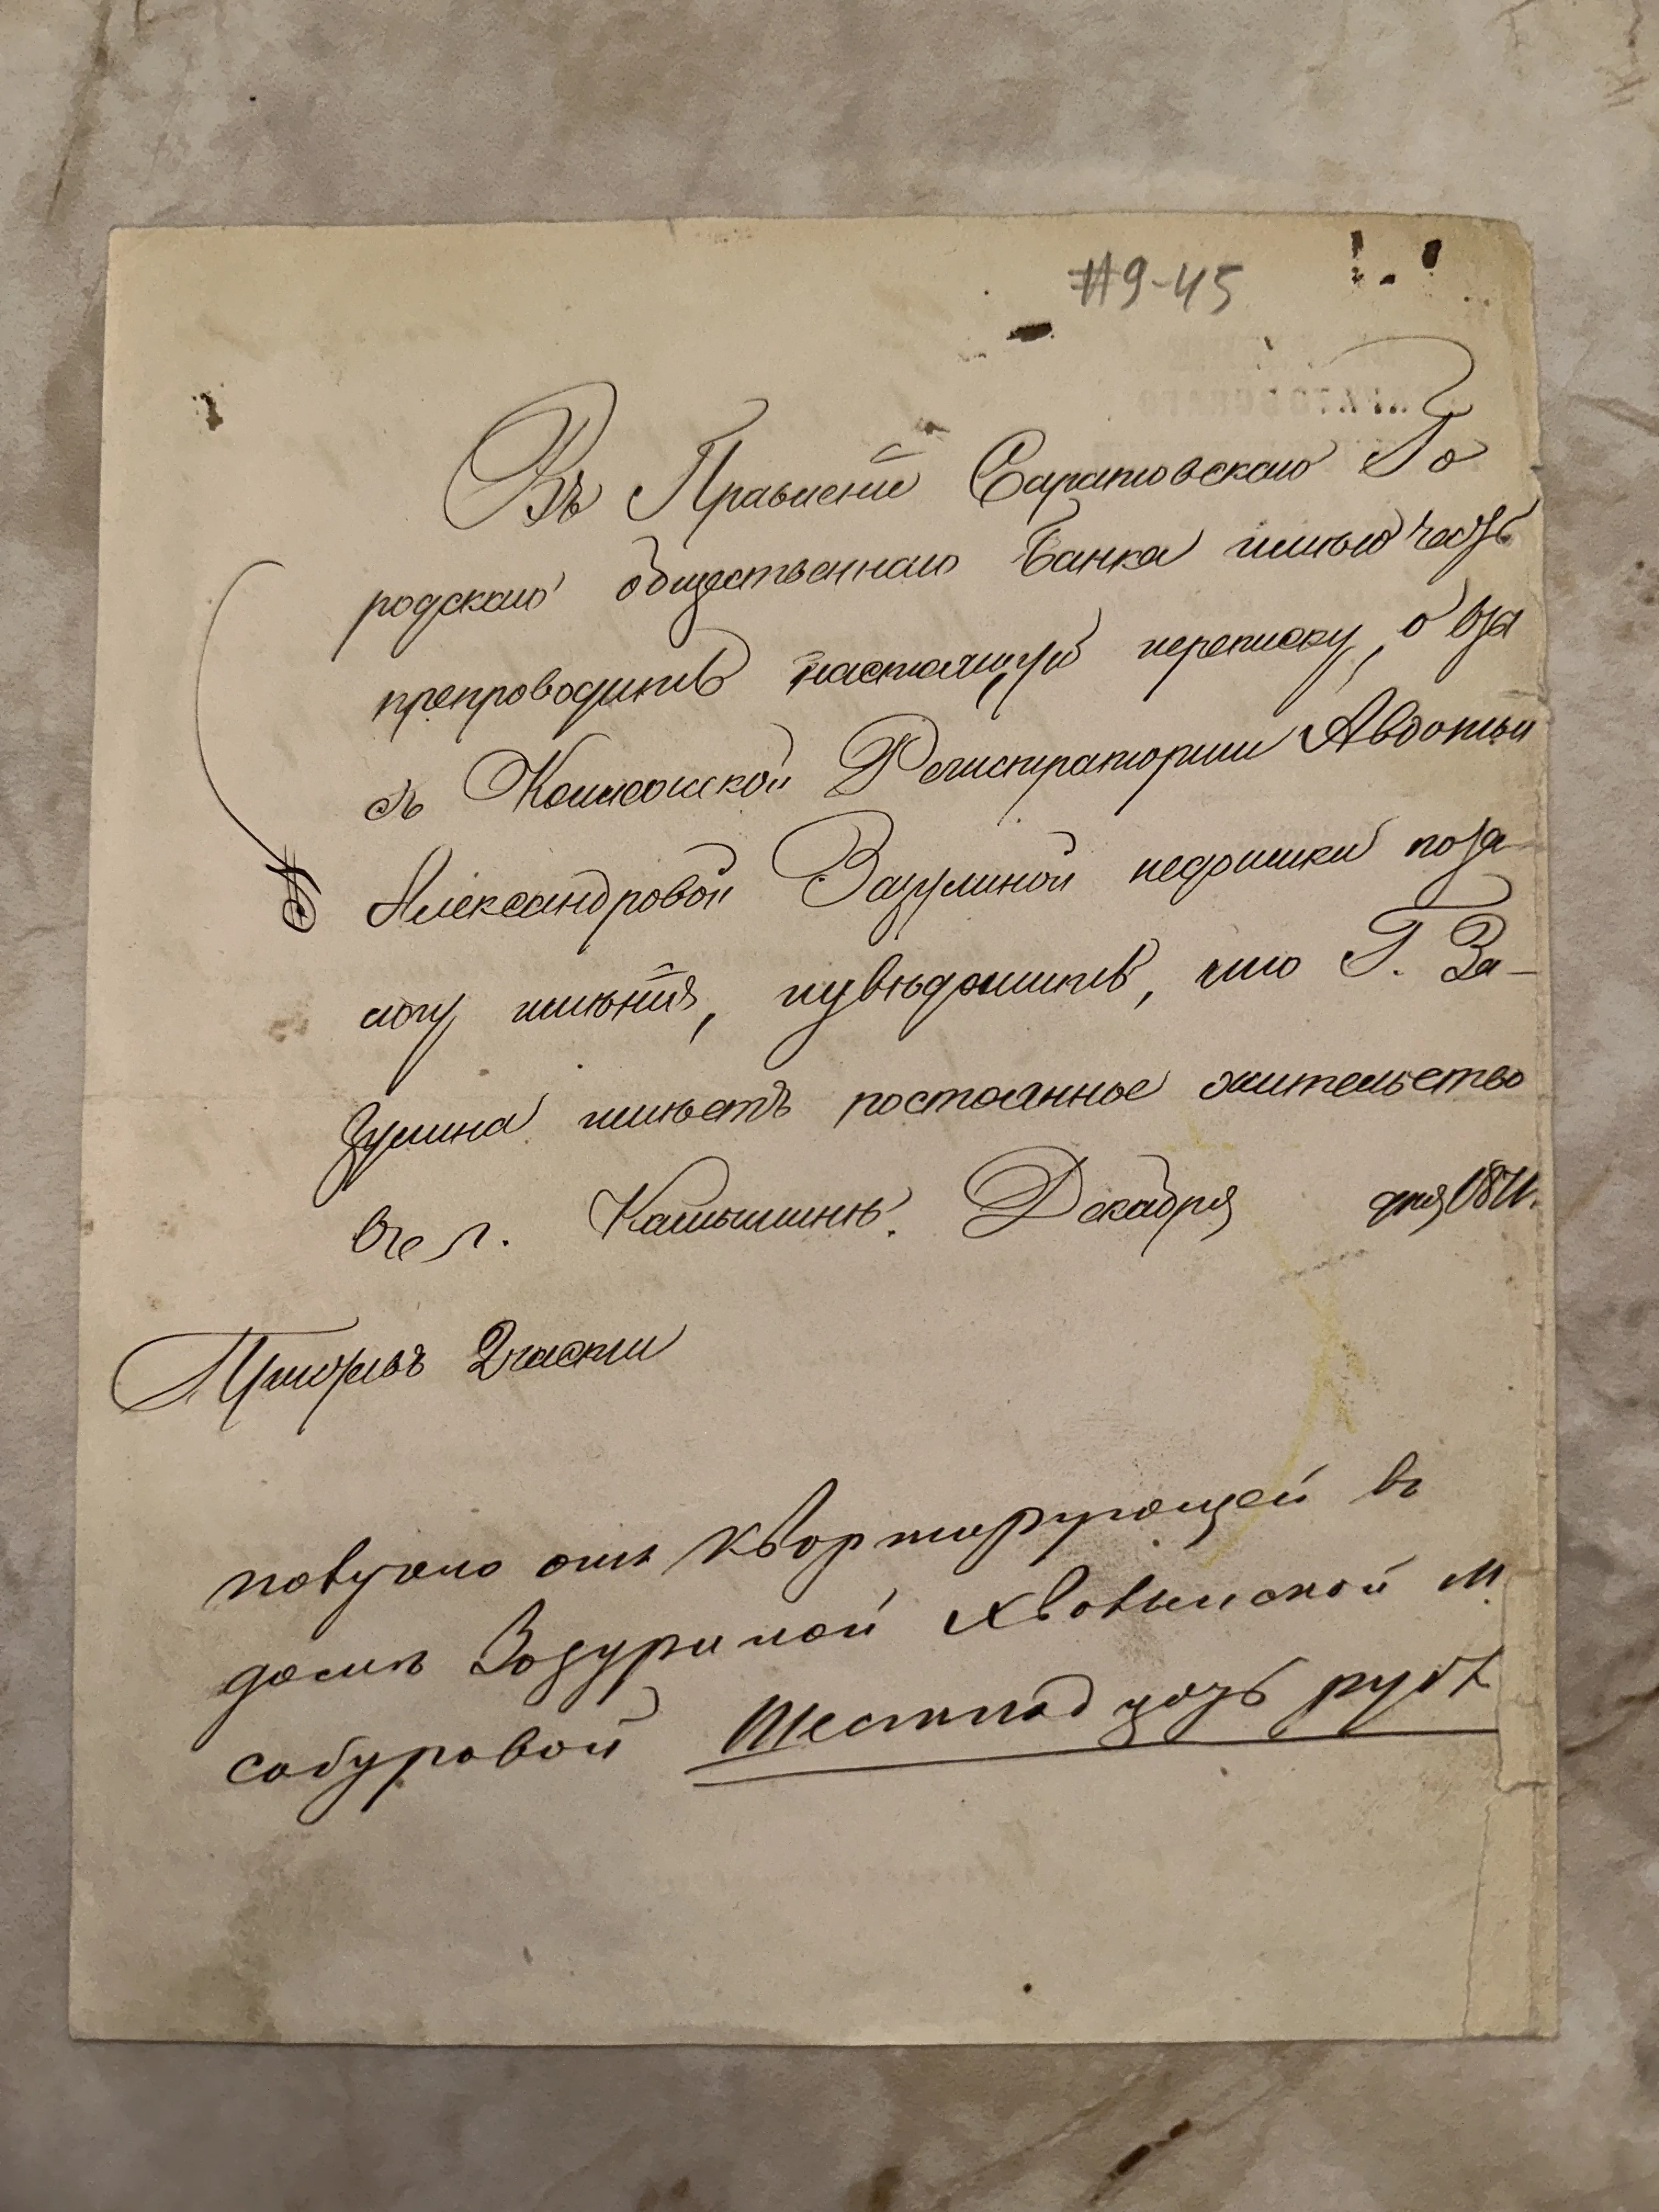 #9-45
Въ Правленiе Саратовскаго Го
родскаго общественнаго Банка имѣю честь
препроводить настоящую переписку, о взы
съ Коллежской Регистраторши Авдотьи
Александровой Зазулиной недоимки по за-
логу имѣнiя, и увѣдомить, что Г. За-
зулина имѣетъ постоянное жительство
въ г. Камышинѣ. Декабря дня 1871.
Приставъ 2 части
получено отъ квортирующей въ
домѣ Зозуриной Хвовынской м.
собуровой шестнадцать руб